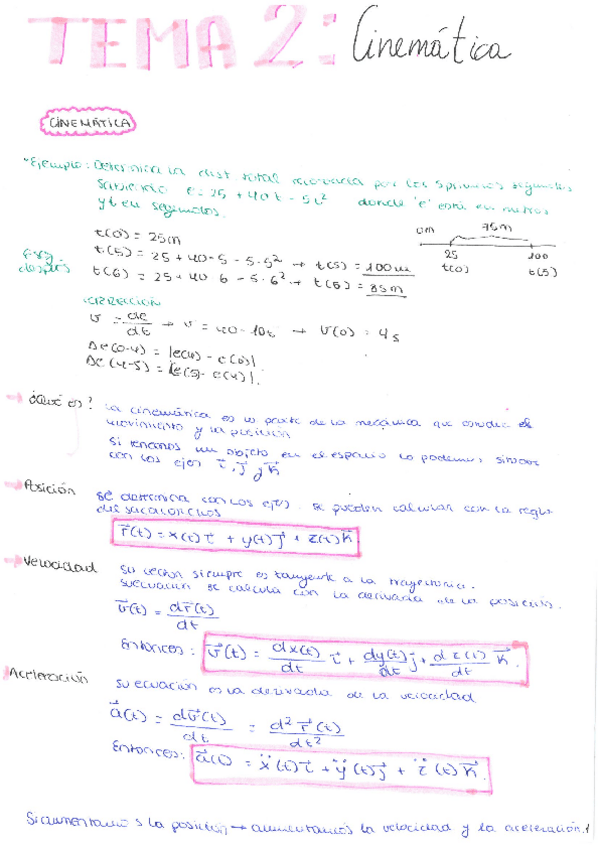 TEMA 2: Cinemática
CINEMÁTICA
*Ejemplo: Determina la dist total recorrida por los 5 primeros segundos
sabiendo e = 25 + 40t - 5t² donde 'e' está en metros
y t en segundos.
t(0) = 25m
t(5) = 25 + 40·5 - 5·5² → t(5) = 100m
t(6) = 25 + 40·6 - 5·6² → t(6) = 85m
0m 75m
25 100
t(0) t(5)
después
CORRECCIÓN
v = de/dt → v = 40 - 10t → v(0) = 4s
Δe(0-4) = |e(4) - e(0)|
Δe(4-5) = |e(5) - e(4)|.
→ ¿Qué es? La cinemática es la parte de la mecánica que estudia el
movimiento y la posición
Si tenemos un objeto en el espacio lo podemos situar
con los ejes i⃗, j⃗ y k⃗
→ Posición se determina con los e(t). se pueden calcular con la regla
del sacacorchos
r⃗(t) = x(t)i⃗ + y(t)j⃗ + z(t)k⃗
→ Velocidad su vector siempre es tangente a la trayectoria.
su ecuación se calcula con la derivada de la posición.
v⃗(t) = dr⃗(t)/dt
Entonces: v⃗(t) = dx(t)/dt i⃗ + dy(t)/dt j⃗ + dz(t)/dt k⃗.
Aceleración su ecuación es la derivada de la velocidad
a⃗(t) = dv⃗(t)/dt = d²r⃗(t)/dt²
Entonces: a⃗(t) = ẍ(t)i⃗ + ÿ(t)j⃗ + z̈(t)k⃗.
Si aumentamos la posición → aumentamos la velocidad y la aceleración.